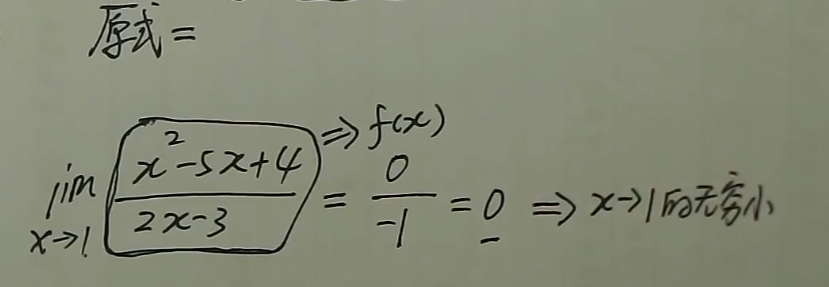 原式=
lim x→1 (x²-5x+4)/(2x-3) = 0/-1 = 0 ⇒ x→1的无穷小
⇒ f(x)